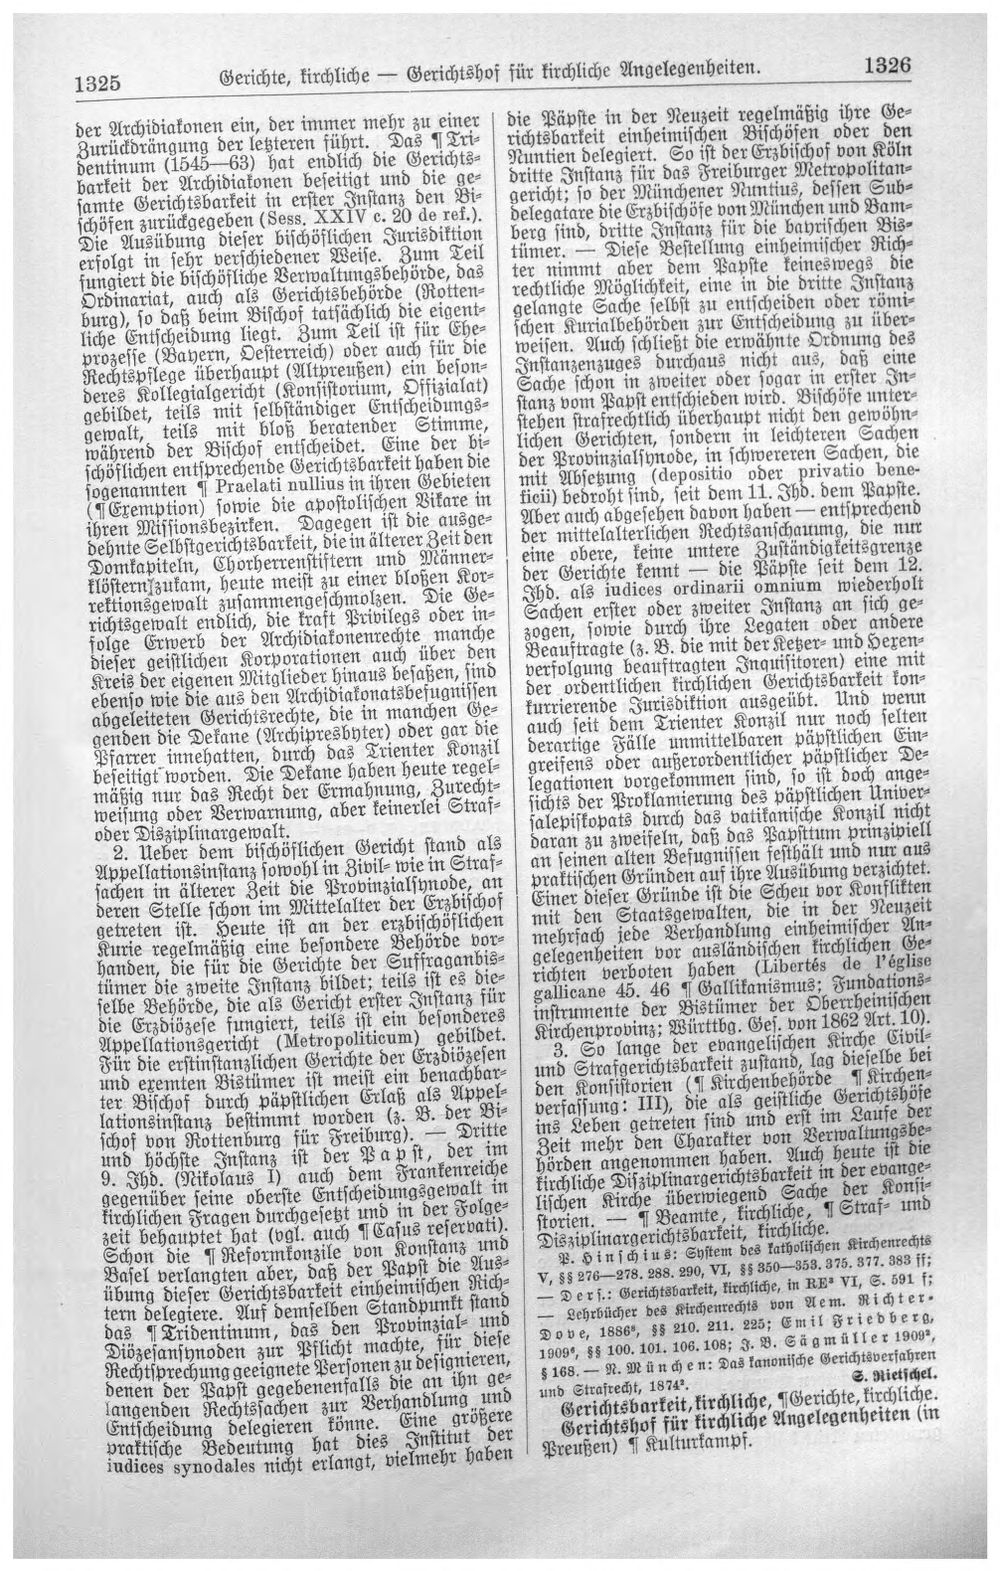 1325
Gerichte, kirchliche — Gerichtshof für kirchliche Angelegenheiten.
1326
der Archidiakonen ein, der immer mehr zu einer
Zurückdrängung der letzteren führt. Das ¶ Tri-
dentinum (1545—63) hat endlich die Gerichts-
barkeit der Archidiakonen beseitigt und die ge-
samte Gerichtsbarkeit in erster Instanz den Bi-
schöfen zurückgegeben (Sess. XXIV c. 20 de ref.).
Die Ausübung dieser bischöflichen Jurisdiktion
erfolgt in sehr verschiedener Weise. Zum Teil
fungiert die bischöfliche Verwaltungsbehörde, das
Ordinariat, auch als Gerichtsbehörde (Rotten-
burg), so daß beim Bischof tatsächlich die eigent-
liche Entscheidung liegt. Zum Teil ist für Ehe-
prozesse (Bayern, Oesterreich) oder auch für die
Rechtspflege überhaupt (Altpreußen) ein beson-
deres Kollegialgericht (Konsistorium, Offizialat)
gebildet, teils mit selbständiger Entscheidungs-
gewalt, teils mit bloß beratender Stimme,
während der Bischof entscheidet. Eine der bi-
schöflichen entsprechende Gerichtsbarkeit haben die
sogenannten ¶ Praelati nullius in ihren Gebieten
(¶ Exemption) sowie die apostolischen Vikare in
ihren Missionsbezirken. Dagegen ist die ausge-
dehnte Selbstgerichtsbarkeit, die in älterer Zeit den
Domkapiteln, Chorherrenstiftern und Männer-
klöstern zukam, heute meist zu einer bloßen Kor-
rektionsgewalt zusammengeschmolzen. Die Ge-
richtsgewalt endlich, die kraft Privilegs oder in-
folge Erwerb der Archidiakonenrechte manche
dieser geistlichen Korporationen auch über den
Kreis der eigenen Mitglieder hinaus besaßen, sind
ebenso wie die aus den Archidiakonatsbefugnissen
abgeleiteten Gerichtsrechte, die in manchen Ge-
genden die Dekane (Archipresbyter) oder gar die
Pfarrer innehatten, durch das Trienter Konzil
beseitigt worden. Die Dekane haben heute regel-
mäßig nur das Recht der Ermahnung, Zurecht-
weisung oder Verwarnung, aber keinerlei Straf-
oder Disziplinargewalt.
2. Ueber dem bischöflichen Gericht stand als
Appellationsinstanz sowohl in Zivil- wie in Straf-
sachen in älterer Zeit die Provinzialsynode, an
deren Stelle schon im Mittelalter der Erzbischof
getreten ist. Heute ist an der erzbischöflichen
Kurie regelmäßig eine besondere Behörde vor-
handen, die für die Gerichte der Suffraganbis-
tümer die zweite Instanz bildet; teils ist es die-
selbe Behörde, die als Gericht erster Instanz für
die Erzdiözese fungiert, teils ist ein besonderes
Appellationsgericht (Metropoliticum) gebildet.
Für die erstinstanzlichen Gerichte der Erzdiözesen
und exemten Bistümer ist meist ein benachbar-
ter Bischof durch päpstlichen Erlaß als Appel-
lationsinstanz bestimmt worden (z. B. der Bi-
schof von Rottenburg für Freiburg). — Dritte
und höchste Instanz ist der Papst, der im
9. Jhd. (Nikolaus I) auch dem Frankenreiche
gegenüber seine oberste Entscheidungsgewalt in
kirchlichen Fragen durchgesetzt und in der Folge-
zeit behauptet hat (vgl. auch ¶ Casus reservati).
Schon die ¶ Reformkonzile von Konstanz und
Basel verlangten aber, daß der Papst die Aus-
übung dieser Gerichtsbarkeit einheimischen Rich-
tern delegiere. Auf demselben Standpunkt stand
das ¶ Tridentinum, das den Provinzial- und
Diözesansynoden zur Pflicht machte, für diese
Rechtsprechung geeignete Personen zu designieren,
denen der Papst gegebenenfalls die an ihn ge-
langenden Rechtssachen zur Verhandlung und
Entscheidung delegieren könne. Eine größere
praktische Bedeutung hat dies Institut der
iudices synodales nicht erlangt, vielmehr haben
die Päpste in der Neuzeit regelmäßig ihre Ge-
richtsbarkeit einheimischen Bischöfen oder den
Nuntien delegiert. So ist der Erzbischof von Köln
dritte Instanz für das Freiburger Metropolitan-
gericht; so der Münchener Nuntius, dessen Sub-
delegatare die Erzbischöfe von München und Bam-
berg sind, dritte Instanz für die bayrischen Bis-
tümer. — Diese Bestellung einheimischer Rich-
ter nimmt aber dem Papste keineswegs die
rechtliche Möglichkeit, eine in die dritte Instanz
gelangte Sache selbst zu entscheiden oder römi-
schen Kurialbehörden zur Entscheidung zu über-
weisen. Auch schließt die erwähnte Ordnung des
Instanzenzuges durchaus nicht aus, daß eine
Sache schon in zweiter oder sogar in erster In-
stanz vom Papst entschieden wird. Bischöfe unter-
stehen strafrechtlich überhaupt nicht den gewöhn-
lichen Gerichten, sondern in leichteren Sachen
der Provinzialsynode, in schwereren Sachen, die
mit Absetzung (depositio oder privatio bene-
ficii) bedroht sind, seit dem 11. Jhd. dem Papste.
Aber auch abgesehen davon haben — entsprechend
der mittelalterlichen Rechtsanschauung, die nur
eine obere, keine untere Zuständigkeitsgrenze
der Gerichte kennt — die Päpste seit dem 12.
Jhd. als iudices ordinarii omnium wiederholt
Sachen erster oder zweiter Instanz an sich ge-
zogen, sowie durch ihre Legaten oder andere
Beauftragte (z. B. die mit der Ketzer- und Hexen-
verfolgung beauftragten Inquisitoren) eine mit
der ordentlichen kirchlichen Gerichtsbarkeit kon-
kurrierende Jurisdiktion ausgeübt. Und wenn
auch seit dem Trienter Konzil nur noch selten
derartige Fälle unmittelbaren päpstlichen Ein-
greifens oder außerordentlicher päpstlicher De-
legationen vorgekommen sind, so ist doch ange-
sichts der Proklamierung des päpstlichen Univer-
salepiskopats durch das vatikanische Konzil nicht
daran zu zweifeln, daß das Papsttum prinzipiell
an seinen alten Befugnissen festhält und nur aus
praktischen Gründen auf ihre Ausübung verzichtet.
Einer dieser Gründe ist die Scheu vor Konflikten
mit den Staatsgewalten, die in der Neuzeit
mehrfach jede Verhandlung einheimischer An-
gelegenheiten vor ausländischen kirchlichen Ge-
richten verboten haben (Libertés de l'église
gallicane 45. 46 ¶ Gallikanismus; Fundations-
instrumente der Bistümer der Oberrheinischen
Kirchenprovinz; Württbg. Ges. von 1862 Art. 10).
3. So lange der evangelischen Kirche Civil-
und Strafgerichtsbarkeit zustand, lag dieselbe bei
den Konsistorien (¶ Kirchenbehörde ¶ Kirchen-
verfassung: III), die als geistliche Gerichtshöfe
ins Leben getreten sind und erst im Laufe der
Zeit mehr den Charakter von Verwaltungsbe-
hörden angenommen haben. Auch heute ist die
kirchliche Disziplinargerichtsbarkeit in der evange-
lischen Kirche überwiegend Sache der Konsi-
storien. — ¶ Beamte, kirchliche, ¶ Straf- und
Disziplinargerichtsbarkeit, kirchliche.
P. Hinschius: System des katholischen Kirchenrechts
V, §§ 276—278. 288. 290, VI, §§ 350—353. 375. 377. 383 ff;
— Ders.: Gerichtsbarkeit, kirchliche, in RE³ VI, S. 591 f;
— Lehrbücher des Kirchenrechts von Aem. Richter-
Dove, 1886⁸, §§ 210. 211. 225; Emil Friedberg,
1909⁶, §§ 100. 101. 106. 108; J. B. Sägmüller 1909²,
§ 168. — N. München: Das kanonische Gerichtsverfahren
und Strafrecht, 1874².
S. Rietschel.
Gerichtsbarkeit, kirchliche, ¶ Gerichte, kirchliche.
Gerichtshof für kirchliche Angelegenheiten (in
Preußen) ¶ Kulturkampf.